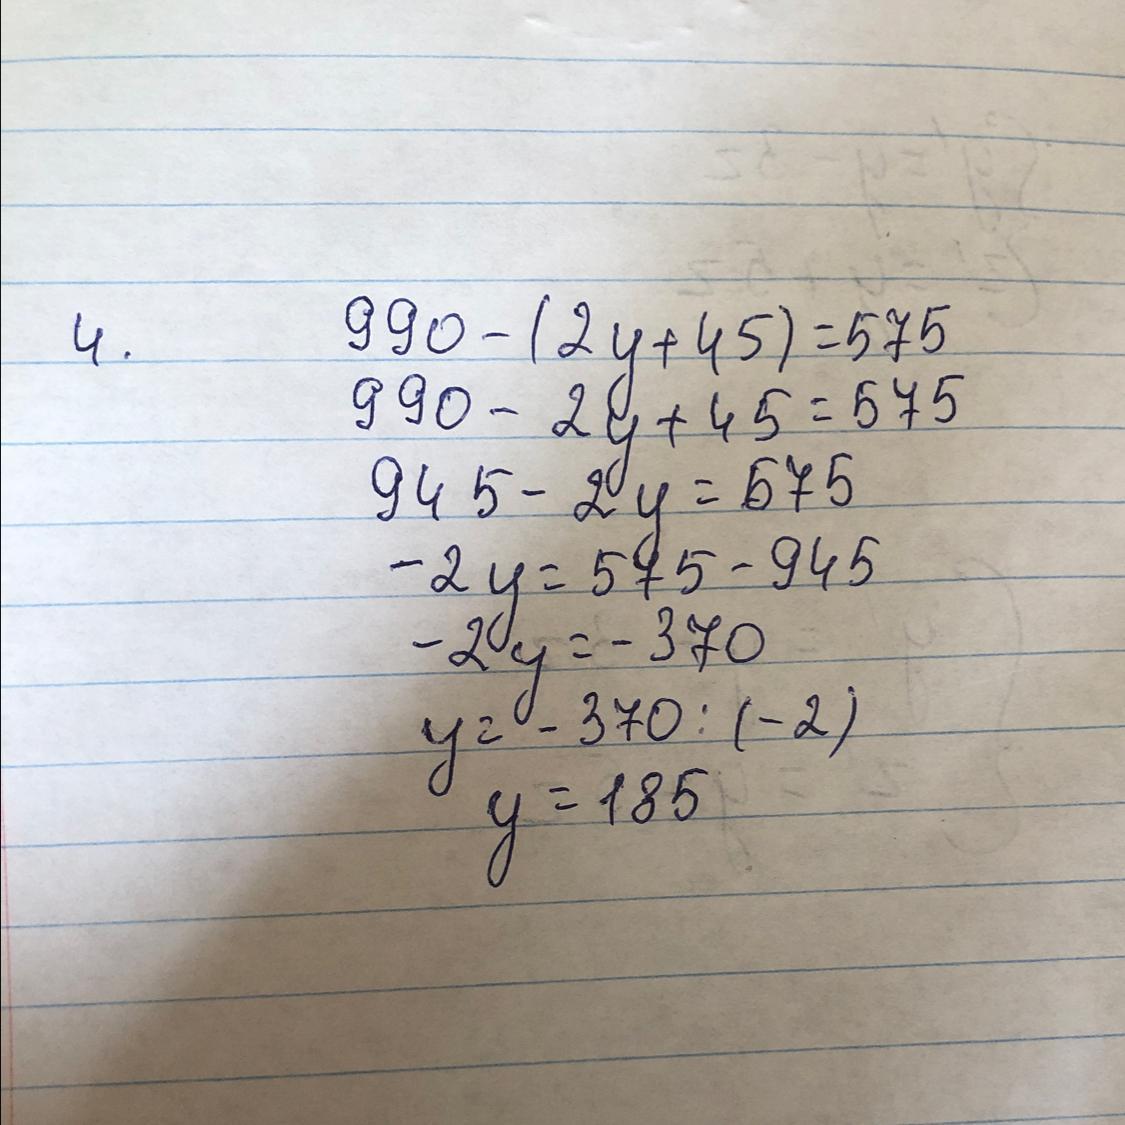 4. 990-(2y+45)=575
990-2y+45=575
945-2y=575
-2y=575-945
-2y=-370
y=-370:(-2)
y=185